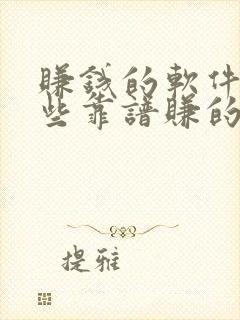 賺錢的軟件
些靠譜賺的
提雅